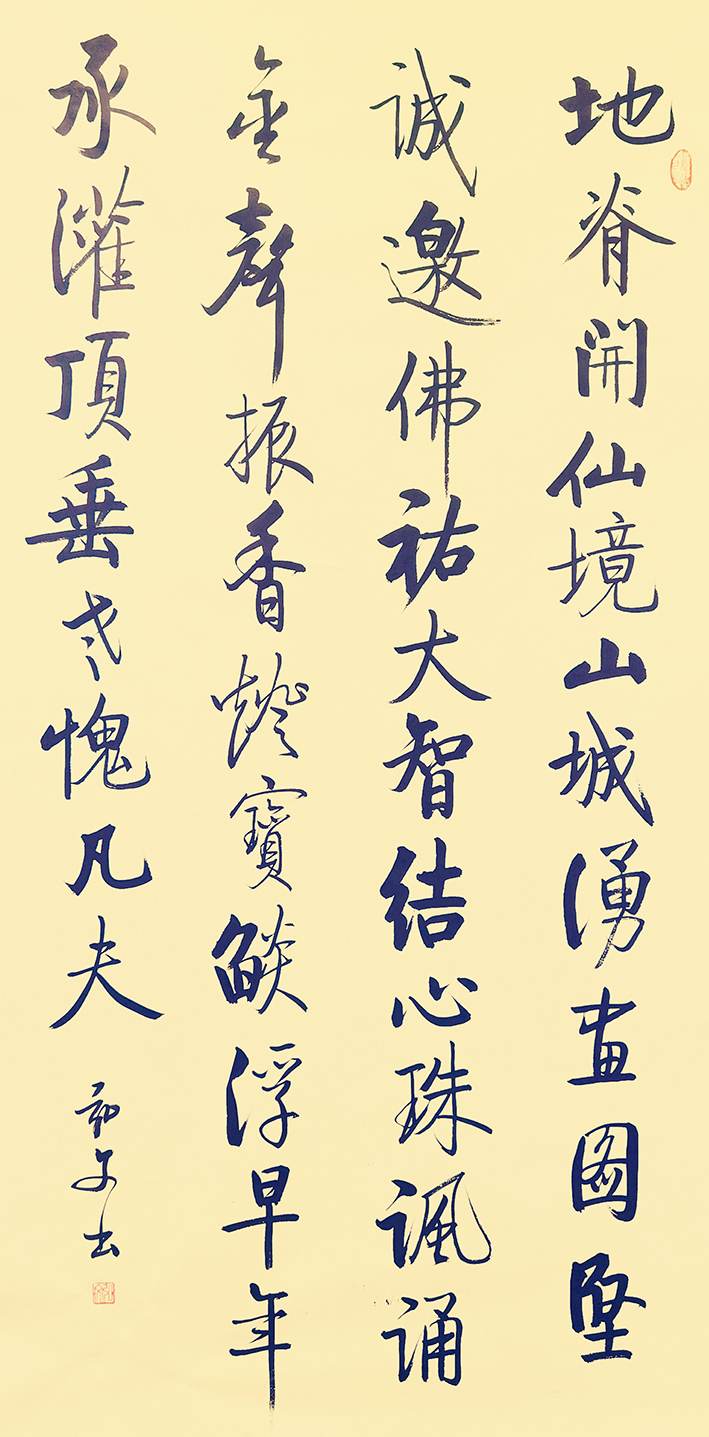 地脊開仙境山城湧畫圖堅
誠邀佛祐大智結心珠諷誦
金聲振香燈寶燄浮早年
承灌頂垂老愧凡夫
书